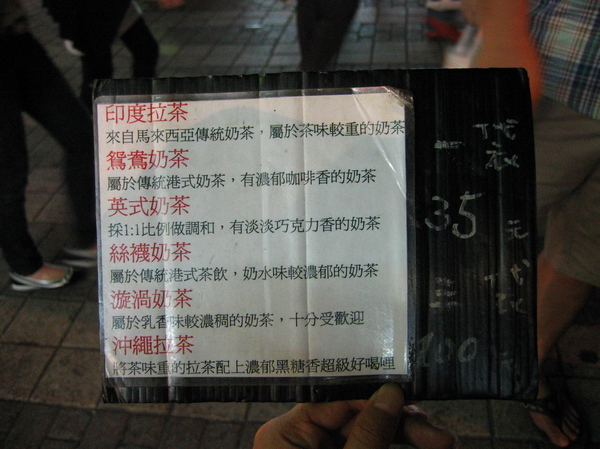 印度拉茶
來自馬來西亞傳統奶茶，屬於茶味較重的奶茶
鴛鴦奶茶
屬於傳統港式奶茶，有濃郁咖啡香的奶茶
英式奶茶
採1:1比例做調和，有淡淡巧克力香的奶茶
絲襪奶茶
屬於傳統港式茶飲，奶水味較濃郁的奶茶
漩渦奶茶
屬於乳香味較濃稠的奶茶，十分受歡迎
沖繩拉茶
將茶味重的拉茶配上濃郁黑糖香超級好喝哩
一袋
35元
三袋
100